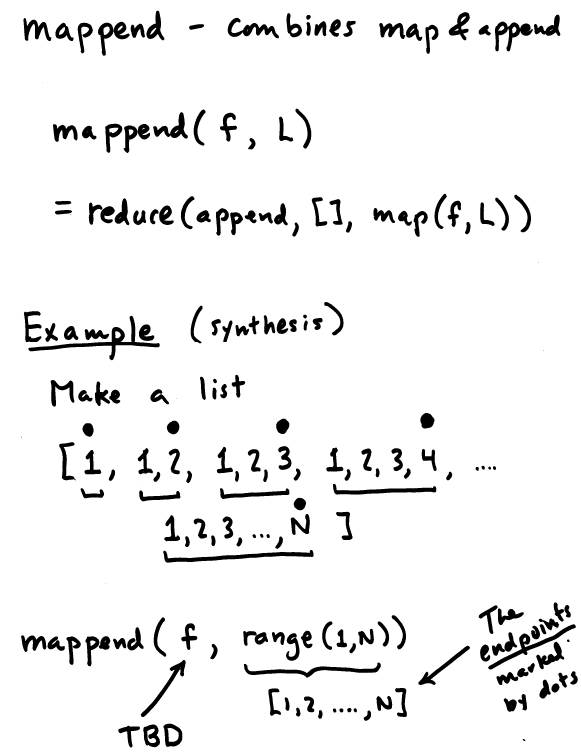 mappend - combines map & append
mappend(f, L)
= reduce(append, [], map(f, L))
Example (synthesis)
Make a list
[1, 1,2, 1,2,3, 1,2,3,4, ....
1,2,3,...,N ]
mappend(f, range(1,N))
[1,2, ...., N]
TBD
The
endpoints
marked
by dots